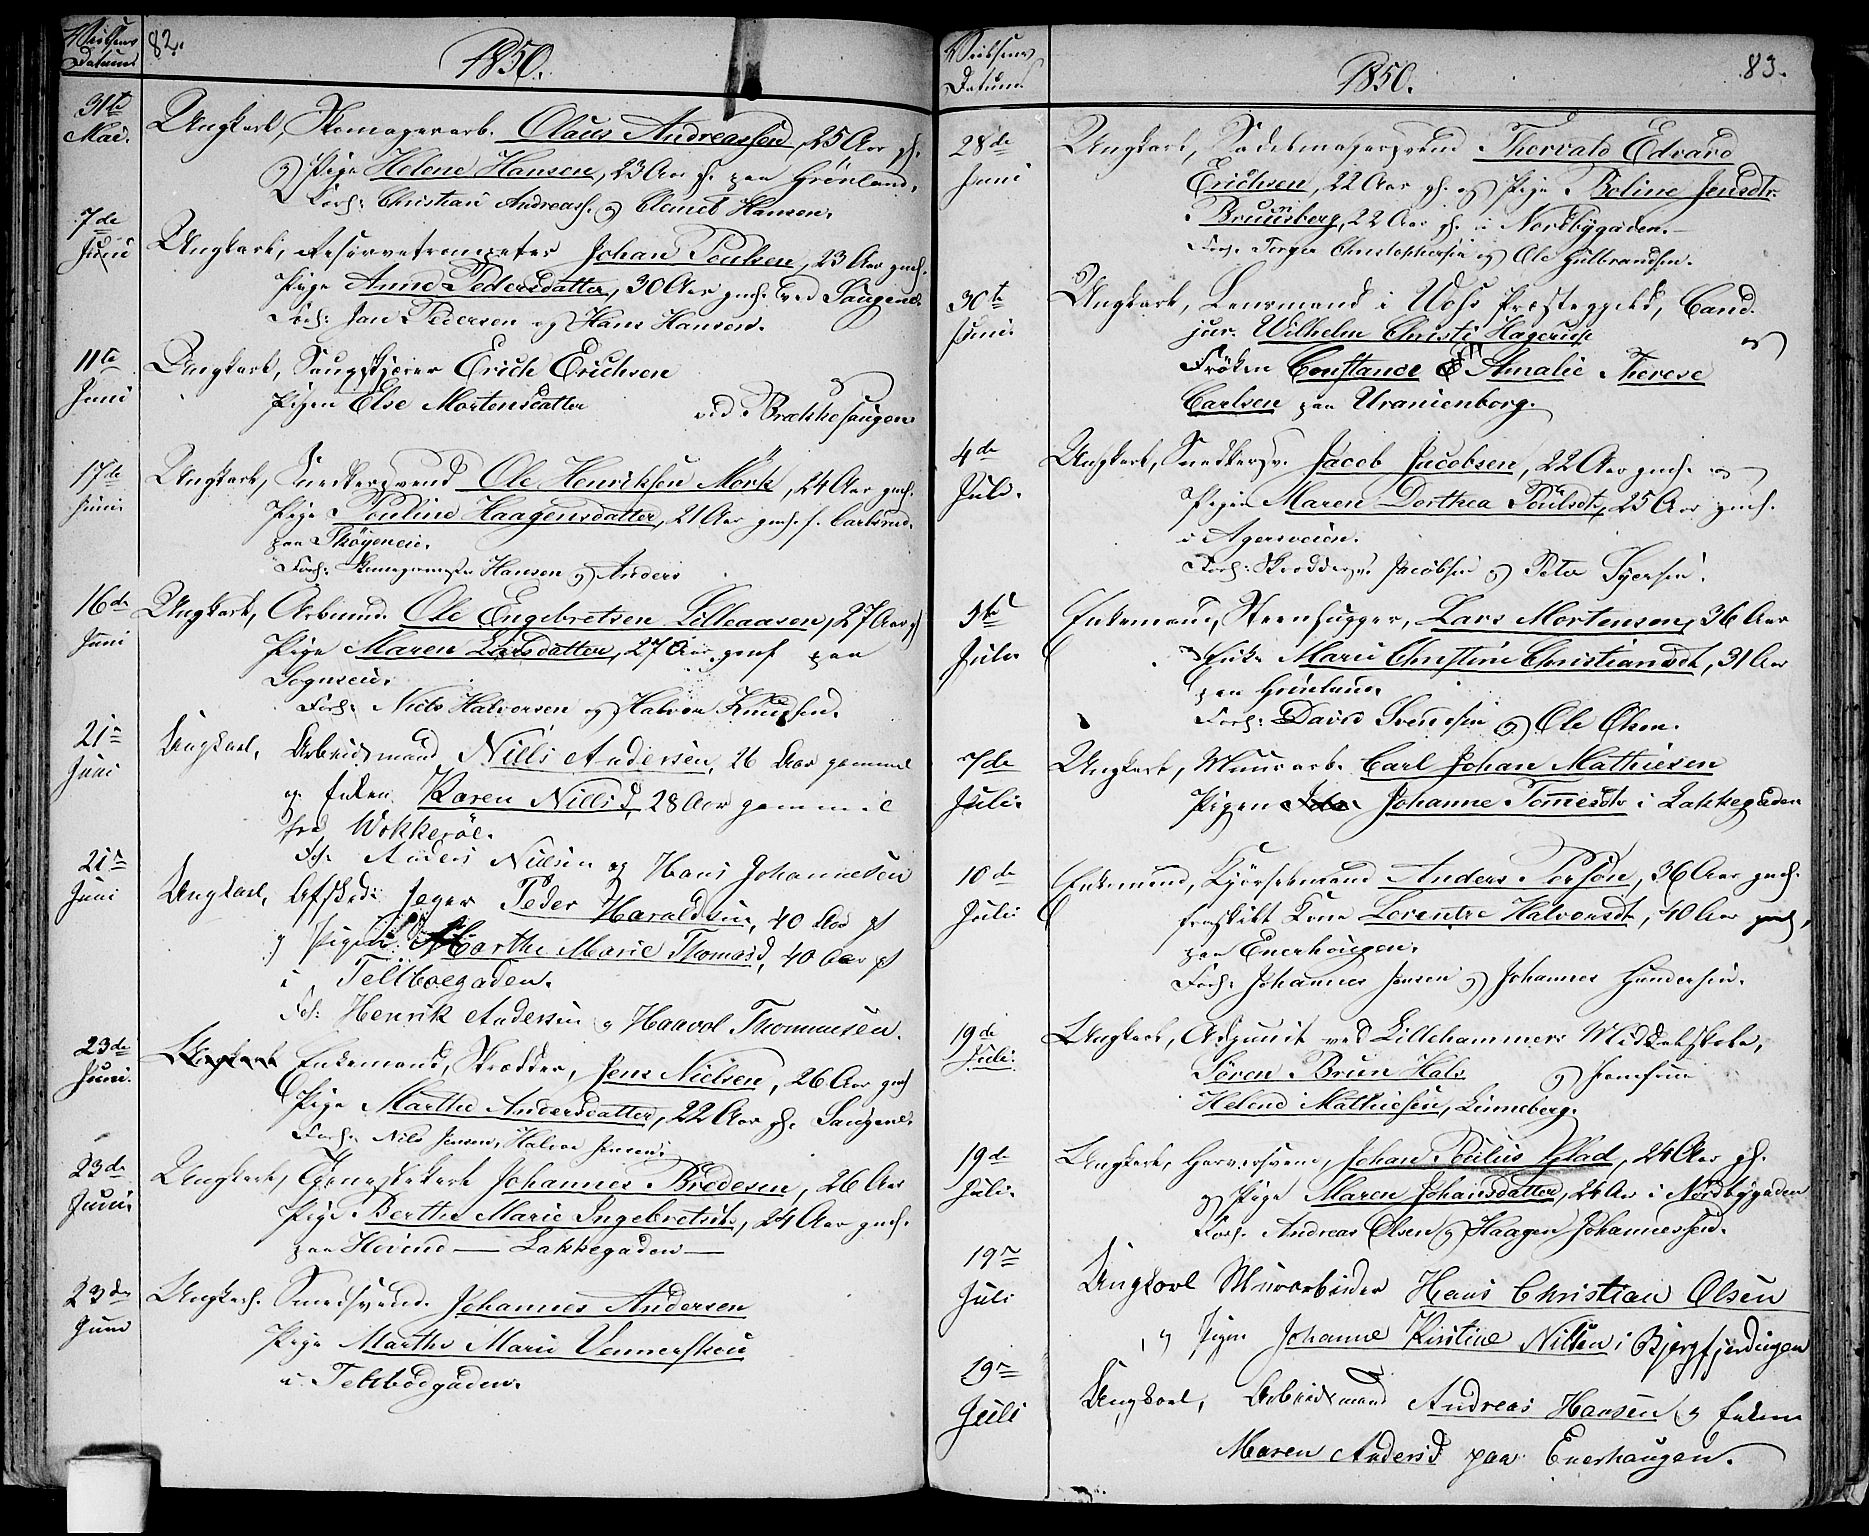 Vielsens Datum
82.
1850.
31te Mai.
Ungkarl, Skomagerarb. Olaus Andreassen, 25 Aar gl.
og Pige Helene Hansen, 23 Aar gl. paa Grönland.
Forl: Christian Andreass. og Hansen.
7de Juni
Ungkarl, Johan Poulsen, 23 Aar gml.
Pige Anne Pedersdatter, 30 Aar gml. ved Saugene.
Forl: Jan Pedersen og Hans Hansen.
11te Juni
Ungkarl, Saugskjærer Erich Erichsen
Pigen Else Mortensdatter ved Brækkesaugen
17de Juni.
Ungkarl, Snedkersvend Ole Henriksen Mörk, 24 Aar gml.
Pige Pouline Haagensdatter, 21 Aar gml. f. Carlsrud.
paa Thöyenei.
Forl: Hansen og Anders
16de Juni
Ungkarl, Arbmd. Ole Engebretsen Lilleaasen, 27 Aar gl
Pige Maren Larsdatter, 27 Aar gml paa
Sognsvei.
Forl. Niels Halvorsen og Halvor Knudsen.
21de Juni
Ungkarl, Arbeidsmand Niels Andersen, 26 Aar gammel
og Enken Karen Nielsd, 28 Aar gammel
fra Wækkeröe.
Fol. Anders Nielsen og Hans Johannesen
21de Juni
Ungkarl, Afsked: Jæger Peder Haraldsen, 40 Aar gl
og Pigen Marthe Marie Thomasd, 40 Aar gl
i Telthoegaden.
Fol: Henrik Andersen og Haavol Thommesen.
23de Juni.
Ungkarl Enkemand, Skrædder, Jens Nielsen, 26 Aar gml
Pige Marthe Andersdatter, 22 Aar gl. Saugene.
Forl. Nils Jensen, Halvor Jensen.
23de Juni
Ungkarl, Tjenestekarl Johannes Bredesen, 26 Aar
Pige Berthe Marie Ingebretsdtr, 24 Aar gml.
paa Hovind — Lakkegaden —
23de Juni
Ungkarl. Smedsvend. Johannes Andersen
Pige Marthe Marie Vennerskou
i Telthoegaden.
Vielsens Datum
1850.
83.
28de Juni
Ungkarl, Sadelmagersvend Thorvald Edvard
Erichsen, 22 Aar gl. og Pige Boline Jensdtr.
Bruunsberg, 22 Aar gl. i Nordbygaden.—
Forl. Torger Christophersen og Ole Gulbrandsen.
30te Juni.
Ungkarl, Lensmand i Præstegjeld, Cand.
jur. Wilhelm Christi Hagerup og
Fröken Constance Amalie Therese
Carlsen paa Uranienborg.
4de Juli.
Ungkarl, Snedkersv. Jacob Jacobsen, 22 Aar gml. og
Pigen Maren Dorthea Poulsdtr, 25 Aar gml.
i Agersveien.
Forl: Skræddersv. Jacobsen og Peter Syversen.
5te Juli
Enkemand, Steenhugger, Lars Mortensen, 36 Aar
Enke Marie Christine Christiansdt, 31 Aar
paa Grönland.
Forl: David Svendsen og Ole Olsen.
7de Juli.
Ungkarl, Muurarb. Carl Johan Mathiesen
Pigen Johanne Tomesdtr i Lakkegaden
10de Juli
Enkemand, Kjörselsmand Anders Persön, 36 Aar gml.
fraskilt Kone Lorentze Halvorsdt, 40 Aar gml.
paa Enerhaugen.
Forl: Johannes Jensen og Johannes Gundersen.
19de Juli.
Ungkarl, Adjunct ved Lillehammers Middelskole,
Sören Bruun Hals og Jomfrue
Helene Mathiesen, Linneberg.
19de Juli.
Ungkarl, Garversvend, Johan Poulus Plad, 24 Aar gl.
og Pige Maren Johansdatter, 24 Aar i Nordbygaden
Forl. Andreas Olsen og Haagen Johannessen.
19de Juli
Ungkarl Murarbeider Hans Christian Olsen
og Pigen Johanne Kirstine Nilsen i Bjergfjerdingen
19de Juli
Ungkarl, Arbeidsmand Andreas Hansen og Enken
Maren Andersd paa Enerhaugen.